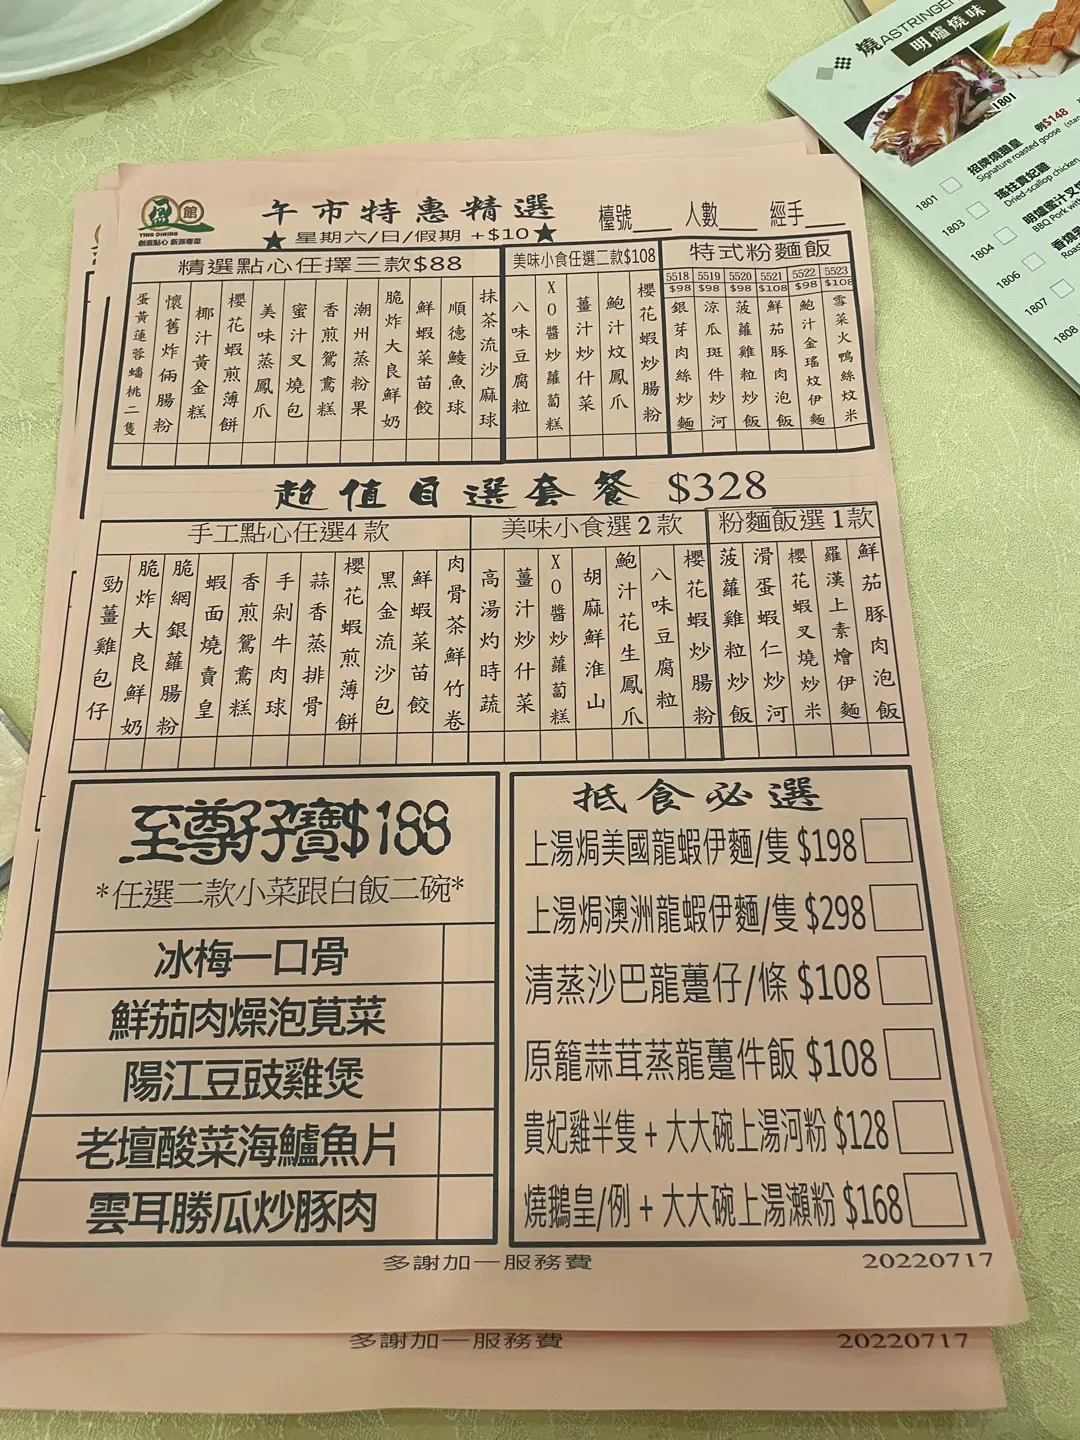 盈館
YING DINING
創意點心 新派粵菜
午市特惠精選
★星期六/日/假期 +$10★
檯號 人數 經手
精選點心任擇三款$88
蛋黃蓮蓉蟠桃二隻
懷舊炸倆腸粉
椰汁黃金糕
櫻花蝦煎薄餅
美味蒸鳳爪
蜜汁叉燒包
香煎鴛鴦糕
潮州蒸粉果
脆炸大良鮮奶
鮮蝦菜苗餃
順德鯪魚球
抹茶流沙麻球
美味小食任選二款$108
八味豆腐粒
XO醬炒蘿蔔糕
薑汁炒什菜
鮑汁炆鳳爪
櫻花蝦炒腸粉
特式粉麵飯
5518 $98 銀芽肉絲炒麵
5519 $98 涼瓜斑件炒河
5520 $98 菠蘿雞粒炒飯
5521 $108 鮮茄豚肉泡飯
5522 $98 鮑汁金瑤炆伊麵
5523 $108 雪菜火鴨絲炆米
超值自選套餐 $328
手工點心任選4款
勁薑雞包仔
脆炸大良鮮奶
脆網銀蘿腸粉
蝦面燒賣皇
香煎鴛鴦糕
手剁牛肉球
蒜香蒸排骨
櫻花蝦煎薄餅
黑金流沙包
鮮蝦菜苗餃
肉骨茶鮮竹卷
美味小食選2款
高湯灼時蔬
薑汁炒什菜
XO醬炒蘿蔔糕
胡麻鮮淮山
鮑汁花生鳳爪
八味豆腐粒
櫻花蝦炒腸粉
粉麵飯選1款
菠蘿雞粒炒飯
滑蛋蝦仁炒河
櫻花蝦叉燒炒米
羅漢上素燴伊麵
鮮茄豚肉泡飯
至尊孖寶$188
*任選二款小菜跟白飯二碗*
冰梅一口骨
鮮茄肉燥泡莧菜
陽江豆豉雞煲
老壇酸菜海鱸魚片
雲耳勝瓜炒豚肉
抵食必選
上湯焗美國龍蝦伊麵/隻 $198
上湯焗澳洲龍蝦伊麵/隻 $298
清蒸沙巴龍躉仔/條 $108
原籠蒜茸蒸龍躉件飯 $108
貴妃雞半隻 + 大大碗上湯河粉 $128
燒鵝皇/例 + 大大碗上湯瀨粉 $168
多謝加一服務費 20220717
多謝加一服務費 20220717
燒 ASTRINGE
明爐燒味
1801
1801 招牌燒鵝皇 例$148
Signature roasted goose
1803 瑤柱貴妃雞
Dried-scallop chicken
1804 明爐蜜汁叉
BBQ Pork
1806 香燒
1807
1808